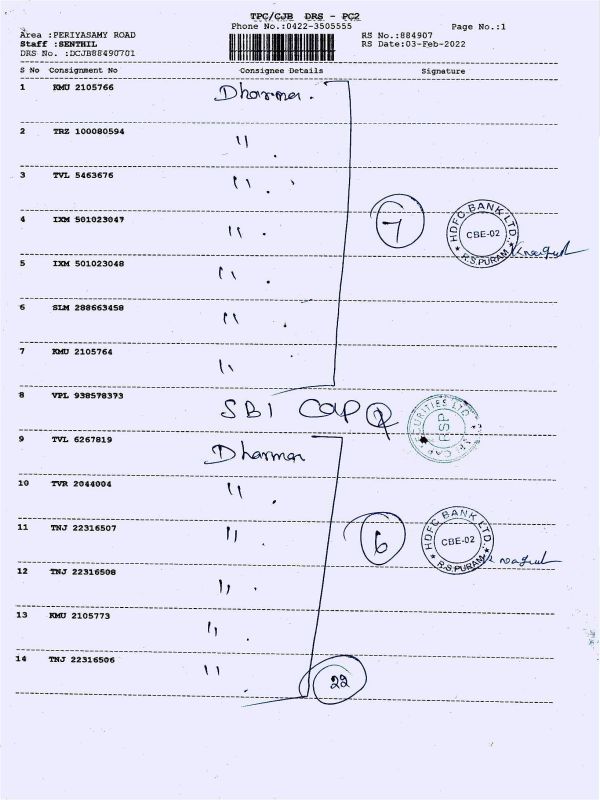 TPC/CJB DRS - PC2
Phone No.:0422-3505555
Page No.:1
Area :PERIYASAMY ROAD
Staff :SENTHIL
DRS No. :DCJB88490701
RS No.:884907
RS Date:03-Feb-2022
S No Consignment No Consignee Details Signature
1 KMU 2105766 Dharma.
2 TRZ 100080594 "
3 TVL 5463676 "
7
HDFC BANK LTD.
CBE-02
R.S.PURAM
4 IXM 501023047 "
5 IXM 501023048 "
6 SLM 288663458 "
7 KMU 2105764 "
8 VPL 938578373 SBI Cap
SBI CAP SECURITIES LTD
RSP
9 TVL 6267819 Dharma
10 TVR 2044004 "
11 TNJ 22316507 "
6
HDFC BANK LTD.
CBE-02
R.S.PURAM
12 TNJ 22316508 "
13 KMU 2105773 "
14 TNJ 22316506 "
22